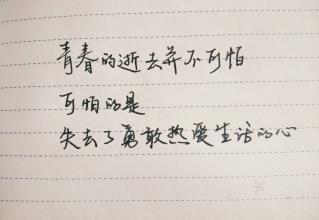 青春的逝去并不可怕
可怕的是
失去了勇敢热爱生活的心